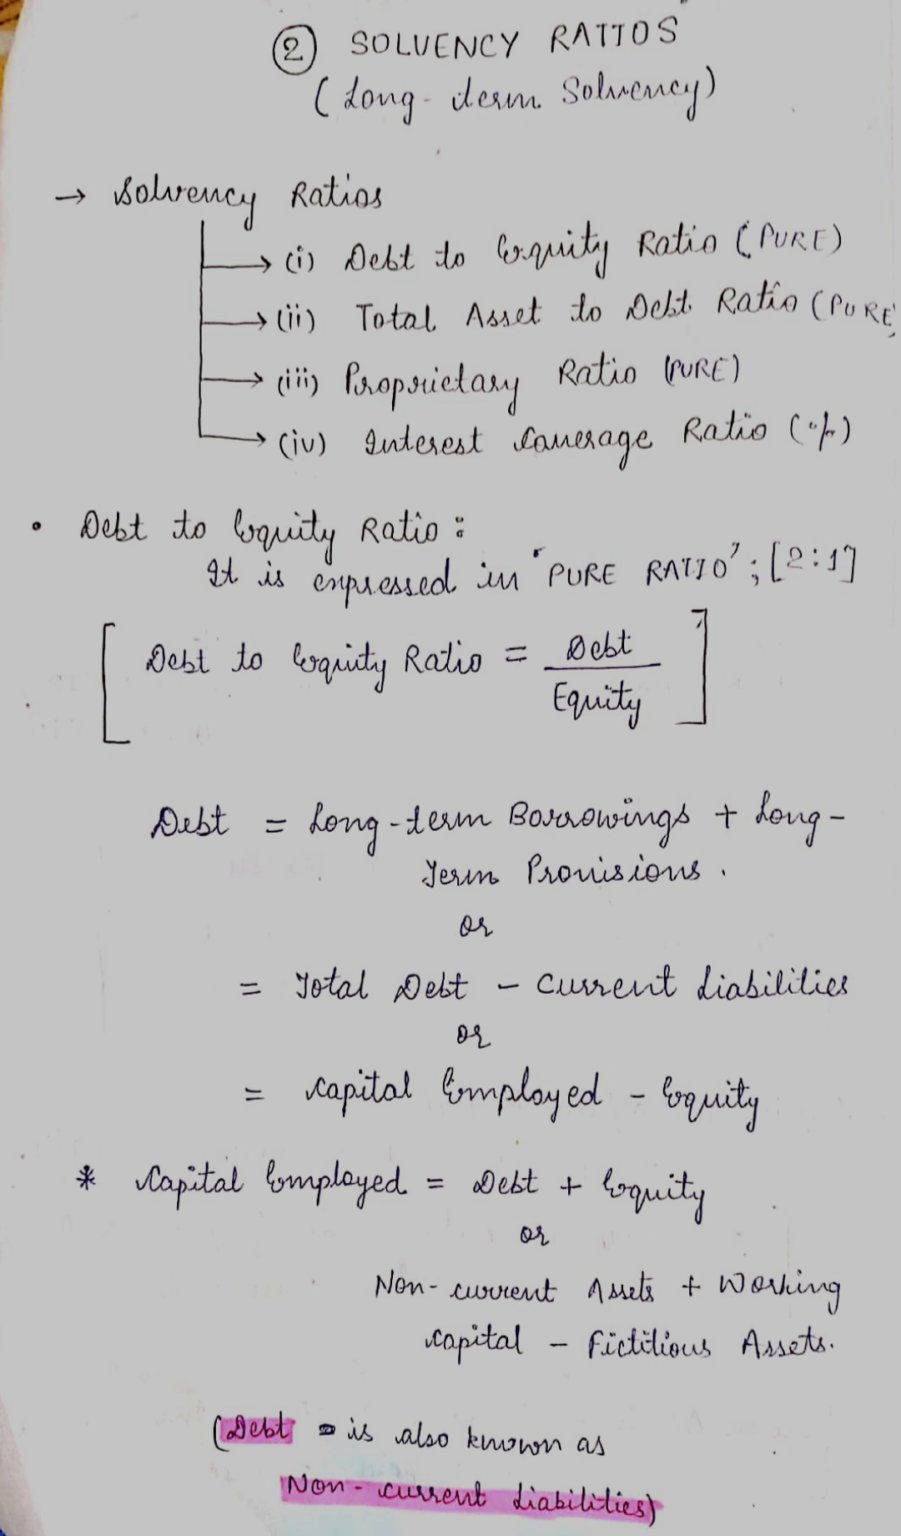 ② SOLVENCY RATIOS
(Long-term Solvency)
→ Solvency Ratios
→ (i) Debt to Equity Ratio (PURE)
→ (ii) Total Asset to Debt Ratio (PURE)
→ (iii) Proprietary Ratio (PURE)
→ (iv) Interest Coverage Ratio (%)
• Debt to Equity Ratio :
It is expressed in 'PURE RATIO' ; [2:1]
[ Debt to Equity Ratio = Debt / Equity ]
Debt = Long-term Borrowings + Long-
Term Provisions.
or
= Total Debt - Current Liabilities
or
= Capital Employed - Equity
* Capital Employed = Debt + Equity
or
Non-current Assets + Working
capital - Fictitious Assets.
(Debt = is also known as
Non-current Liabilities)